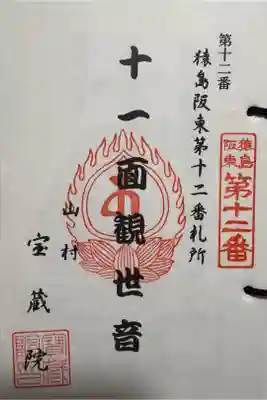 第十二番
猿島阪東第十二番札所
猿島
阪東
第十二番
十一面観世音
山村
宝蔵院